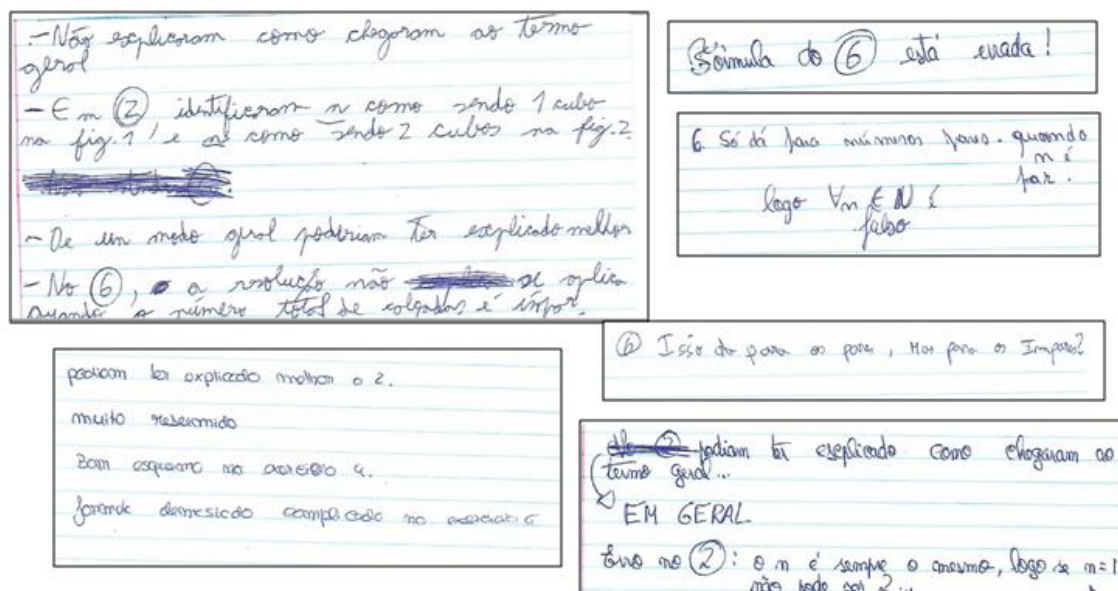 - Não explicaram como chegaram ao termo
geral
- Em ② identificaram n como sendo 1 cubo
na fig. 1 e como sendo 2 cubos na fig. 2
- De um modo geral poderiam ter explicado melhor
- No ⑥, a resolução não se aplica
quando o número total de colgadas é ímpar.
Fórmula do ⑥ está errada!
6. Só dá para números pares. quando
n é
par.
logo ∀n ∈ N é
falso
⑥ Isso da para os pares, Mas para os Impares?
podiam ter explicado melhor o 2.
muito resumido
Bom esquema no exercício 4.
demasiado complicado no exercício
podiam ter explicado como chegaram ao
termo geral...
EM GERAL
Erro no ②: o n é sempre o mesmo, logo se n=1
não pode ser 2